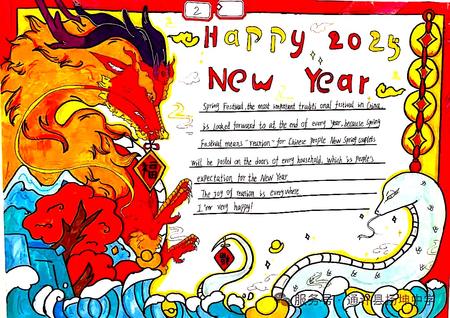 2
Happy 2025
New Year
Spring Festival, the most important traditional festival in China,
is looked forward to at the end of every year, because Spring
Festival means "reunion" for Chinese people New Spring couplets
will be posted on the doors of every household, which is people's
expectation for the New Year
The joy of reunion is everywhere
I'm very happy!
福
服务号